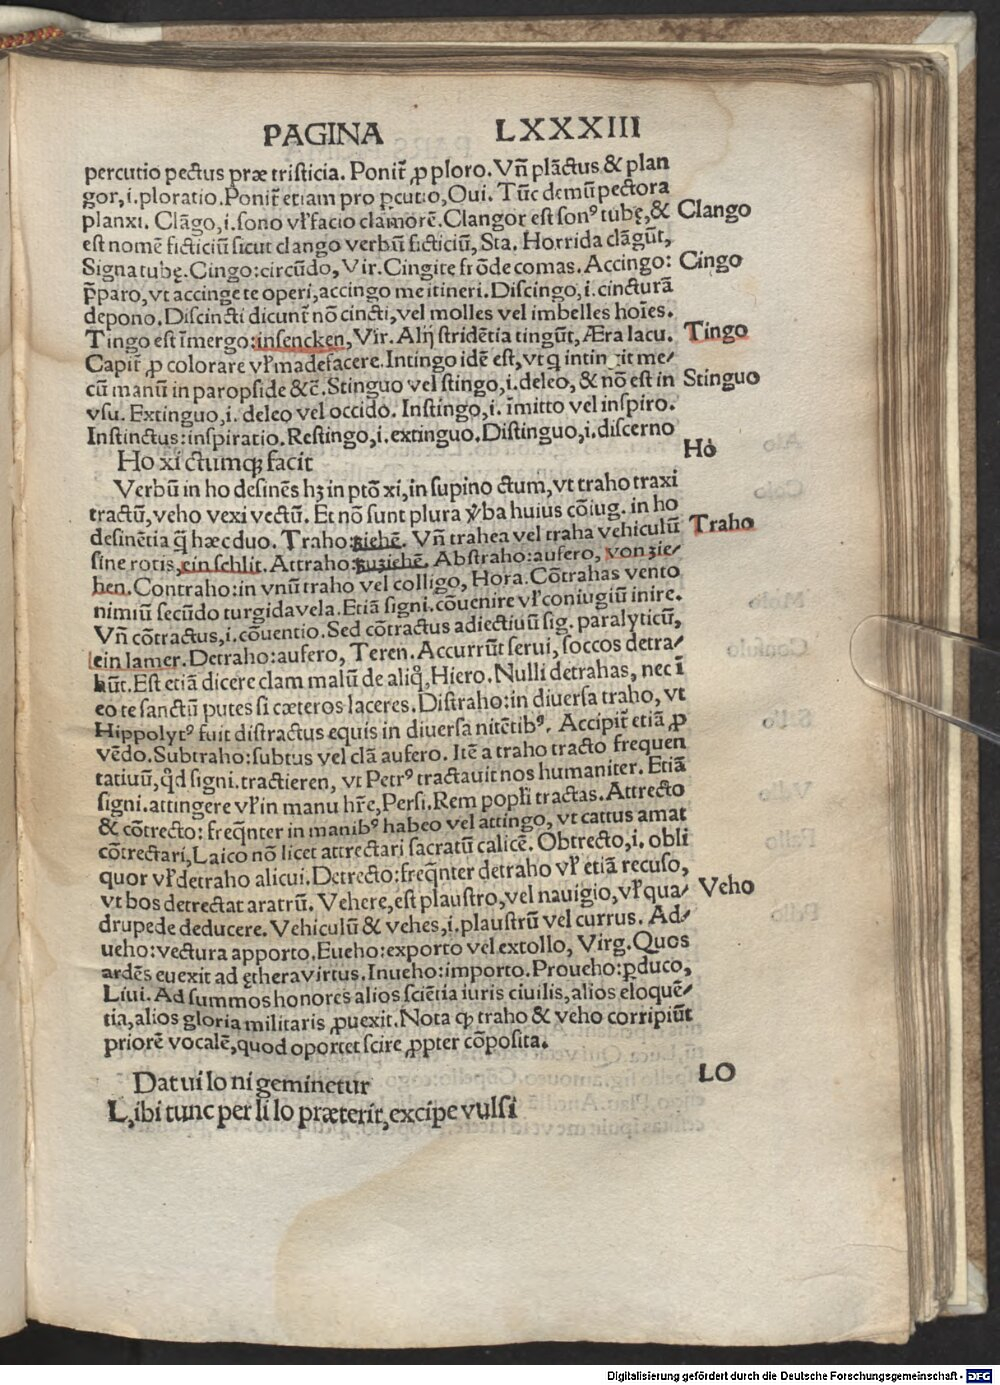 PAGINA LXXXIII
percutio pectus præ tristicia. Ponit᷑ ꝓ ploro. Vñ plãctus & plan
gor, i. ploratio. Ponit᷑ etiam pro ꝑcutio, Oui. Tũc demũ pectora
planxi. Clãgo, i. sono vł facio clamorẽ. Clangor est son⁹ tubę, & Clango
est nomẽ ficticiũ sicut clango verbũ ficticiũ, Sta. Horrida clãgũt,
Signa tubę. Cingo: circũdo, Vir. Cingite frõde comas. Accingo: Cingo
p̄paro, vt accinge te operi, accingo me itineri. Discingo, i. cincturã
depono. Discincti dicunt᷑ nõ cincti, vel molles vel imbelles hoĩes.
Tingo est ĩmergo: insencken, Vir. Alij stridẽtia tingũt, Æra lacu. Tingo
Capit᷑ ꝓ colorare vł madefacere. Intingo idẽ est, vt q intingit me/
cũ manũ in paropside &c̃. Stinguo vel stingo, i. deleo, & nõ est in Stinguo
vsu. Extinguo, i. deleo vel occido. Instingo, i. ĩmitto vel inspiro.
Instinctus: inspiratio. Restingo, i. extinguo. Distinguo, i. discerno
Ho xi ctumqꝫ facit Ho
Verbũ in ho desinẽs hꝫ in ptõ xi, in supino ctum, vt traho traxi
tractũ, veho vexi vectũ. Et nõ sunt plura v̆ba huius cõiug. in ho
desinẽtia q̃ hæc duo. Traho: ziehẽ. Vñ trahea vel traha vehiculũ Traho
sine rotis, ein schlit. Attraho: zuziehẽ. Abstraho: aufero, von zie/
hen. Contraho: in vnũ traho vel colligo, Hora. Cõtrahas vento
nimiũ secũdo turgida vela. Etiã signi. cõuenire vł coniugiũ inire.
Vñ cõtractus, i. cõuentio. Sed cõtractus adiectiuũ sig. paralyticũ,
ein lamer. Detraho: aufero, Teren. Accurrũt serui, soccos detra/
hũt. Est etiã dicere clam malũ de aliq̊, Hiero. Nulli detrahas, nec ĩ
eo te sanctũ putes si cæteros laceres. Distraho: in diuersa traho, vt
Hippolyt⁹ fuit distractus equis in diuersa nitẽtib⁹. Accipit᷑ etiã ꝓ
vẽdo. Subtraho: subtus vel clã aufero. Itẽ a traho tracto frequen
tatiuũ, q̊d signi. tractieren, vt Petr⁹ tractauit nos humaniter. Etiã
signi. attingere vł in manu hr̃e, Persi. Rem popłi tractas. Attrecto
& cõtrecto: freq̃nter in manib⁹ habeo vel attingo, vt cattus amat
cõtrectari, Laico nõ licet attrectari sacratũ calicẽ. Obtrecto, i. obli
quor vł detraho alicui. Detrecto: freq̃nter detraho vł etiã recuso,
vt bos detrectat aratrũ. Vehere, est plaustro, vel nauigio, vł qua/ Veho
drupede deducere. Vehiculũ & vehes, i. plaustrũ vel currus. Ad/
ueho: vectura apporto. Eueho: exporto vel extollo, Virg. Quos
ardẽs euexit ad ętherą virtus. Inueho: importo. Proueho: ꝓduco,
Liui. Ad summos honores alios sciẽtia iuris ciuilis, alios eloquẽ/
tia, alios gloria militaris ꝓuexit. Nota qꝙ traho & veho corripiũt
priorẽ vocalẽ, quod oportet scire ꝓpter cõposita.
Dat ui lo ni geminetur LO
L, ibi tunc per li lo præterit, excipe vulsi
Digitalisierung gefördert durch die Deutsche Forschungsgemeinschaft - DFG